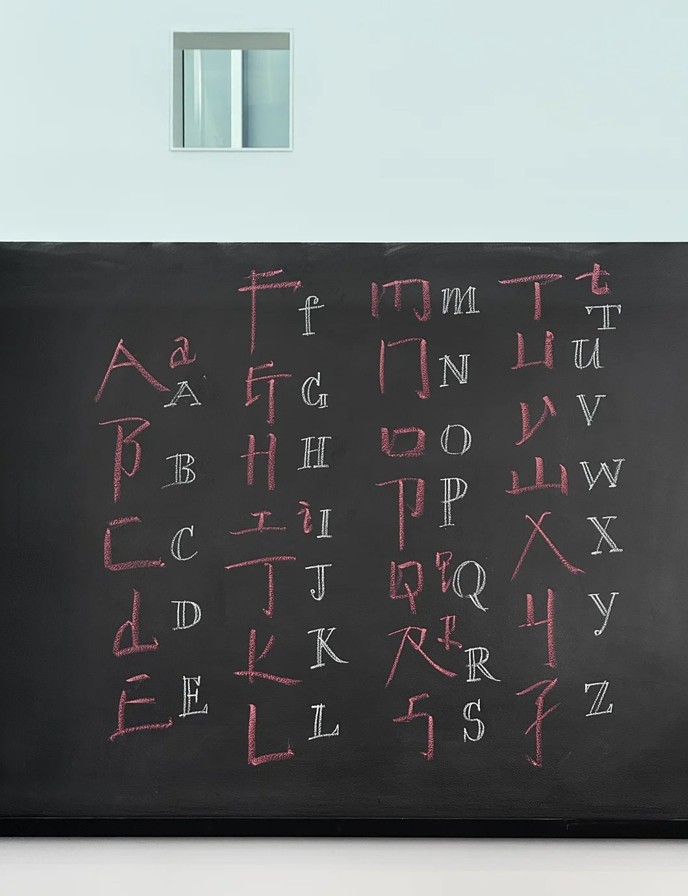 A a A
B B
C C
d D
E E
F f
G G
H H
I i I
J J
K K
L L
M m
N N
O O
P P
Q q Q
R R R
S S
T t T
U U
V V
W W
X X
Y y
Z Z